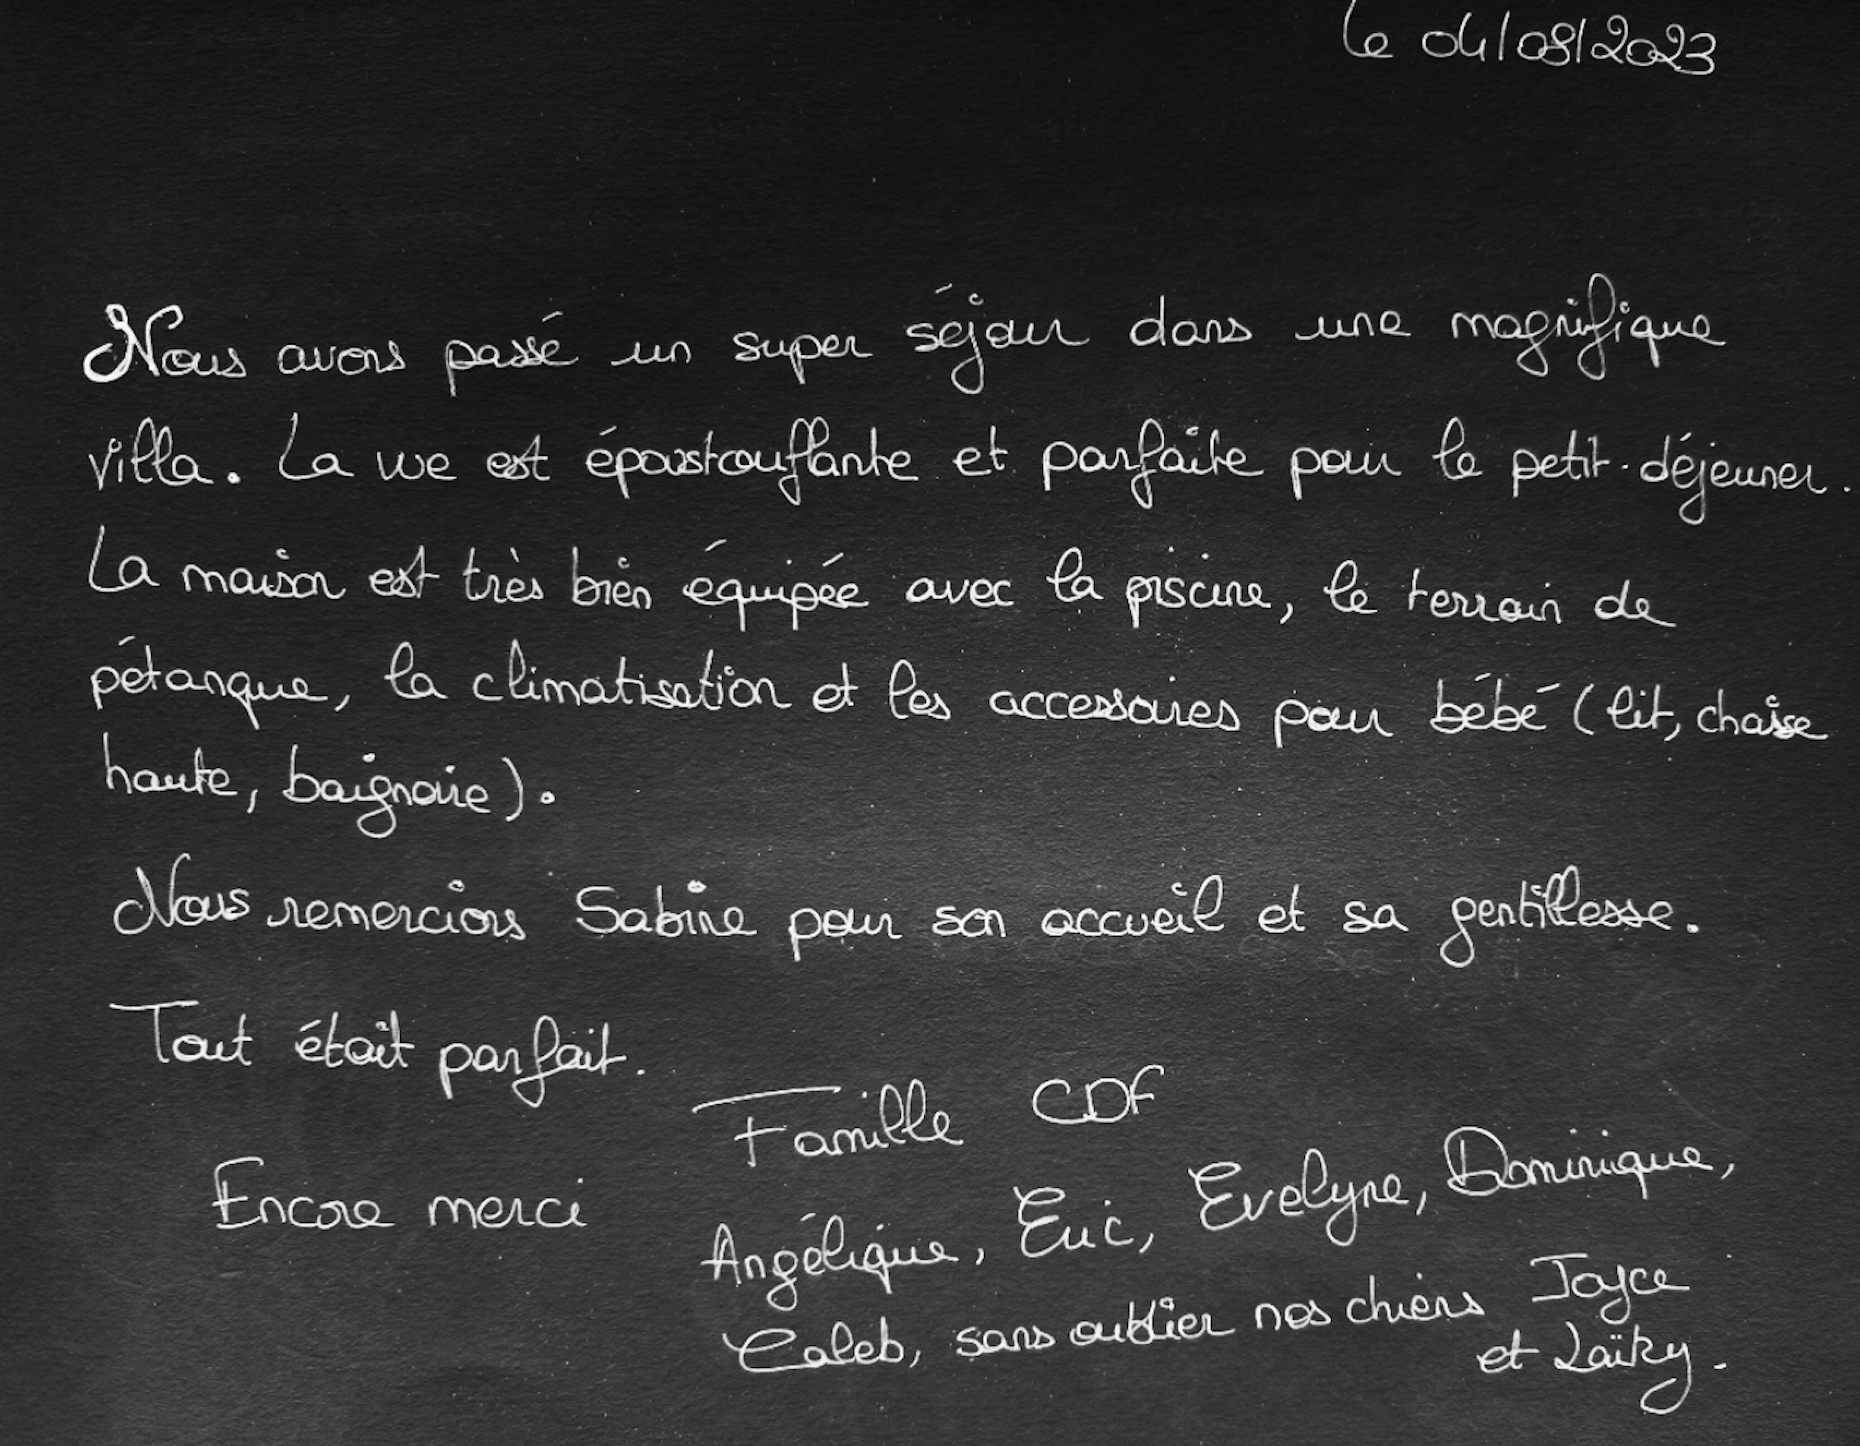 le 04/08/2023
Nous avons passé un super séjour dans une magnifique
villa. La vue est époustouflante et parfaite pour le petit-déjeuner.
La maison est très bien équipée avec la piscine, le terrain de
pétanque, la climatisation et les accessoires pour bébé (lit, chaise
haute, baignoire).
Nous remercions Sabine pour son accueil et sa gentillesse.
Tout était parfait.
Famille CDF
Encore merci
Angélique, Eric, Evelyne, Dominique,
Caleb, sans oublier nos chiens Joyce
et Laïky.